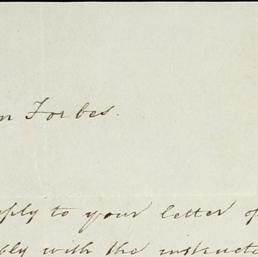 n Forbes.
eply to your letter of
bly with the instruct